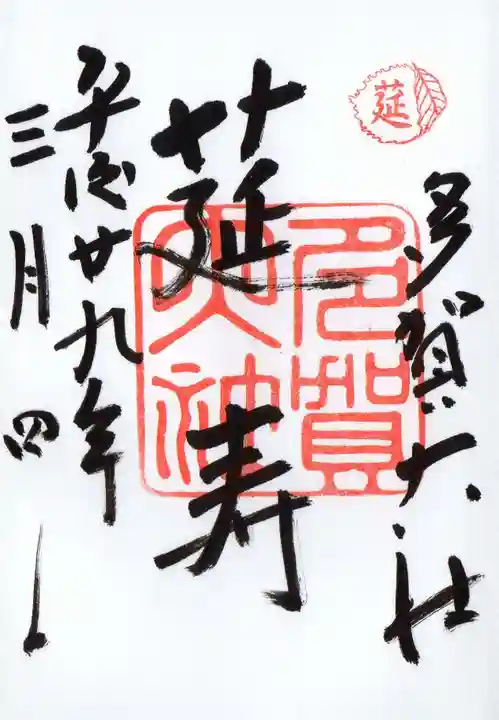 莚
多賀大社
莚寿
多賀大神
平成廿九年
三月四日